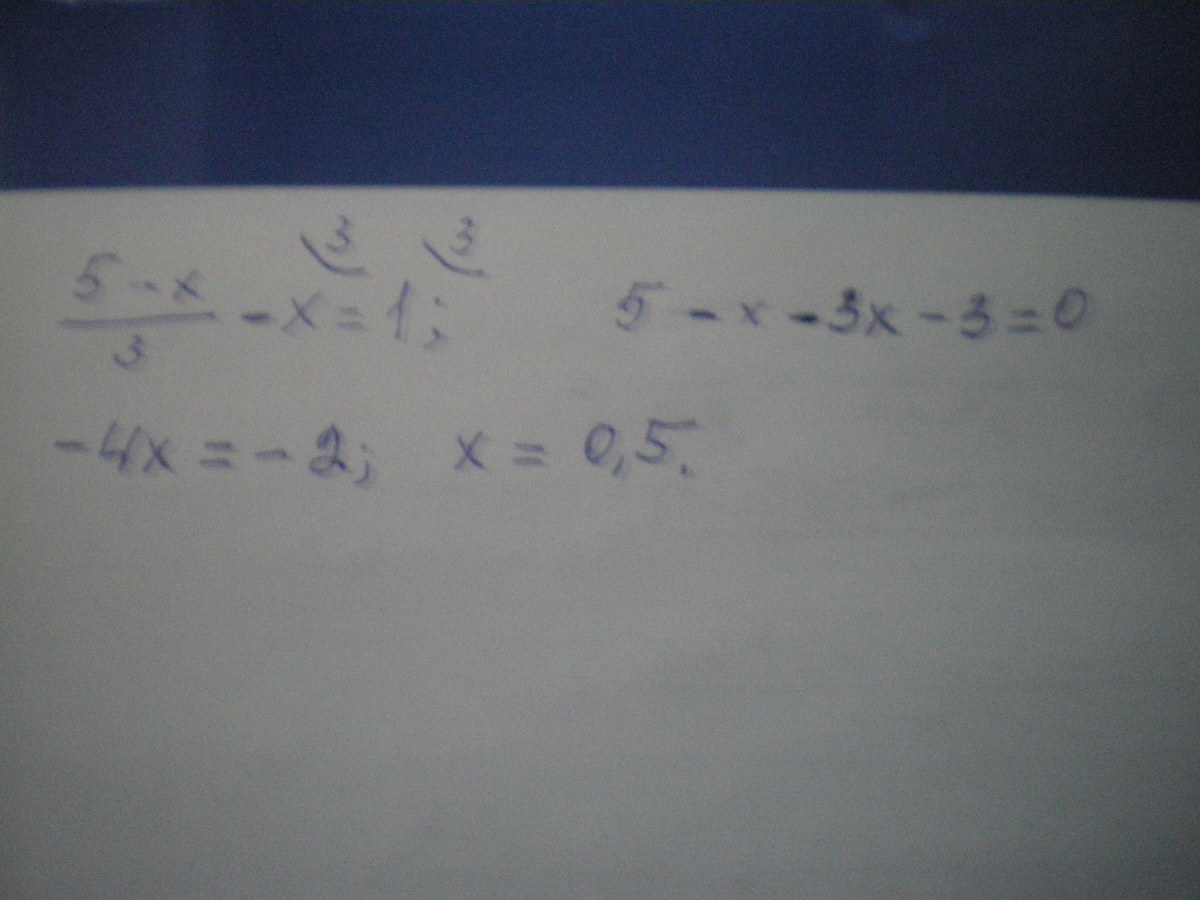 3 3
5-x/3 - x = 1; 5 - x - 3x - 3 = 0
-4x = -2; x = 0,5.